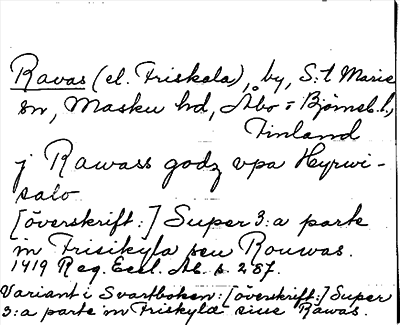 Ravas (el. Friskala), by, S:t Marie
sn, Masku hd, Åbo = Björneb. l.,
Finland
j Rawass godz vpa Hyrwi-
salo
[överskrift:] Super 3:a parte
in Frisikyla seu Rouwas.
1419 Reg. Eccl. Ab. s. 287.
Variant i Svartboken: [överskrift:] Super
3:a parte in Friskyla siue Rawas.